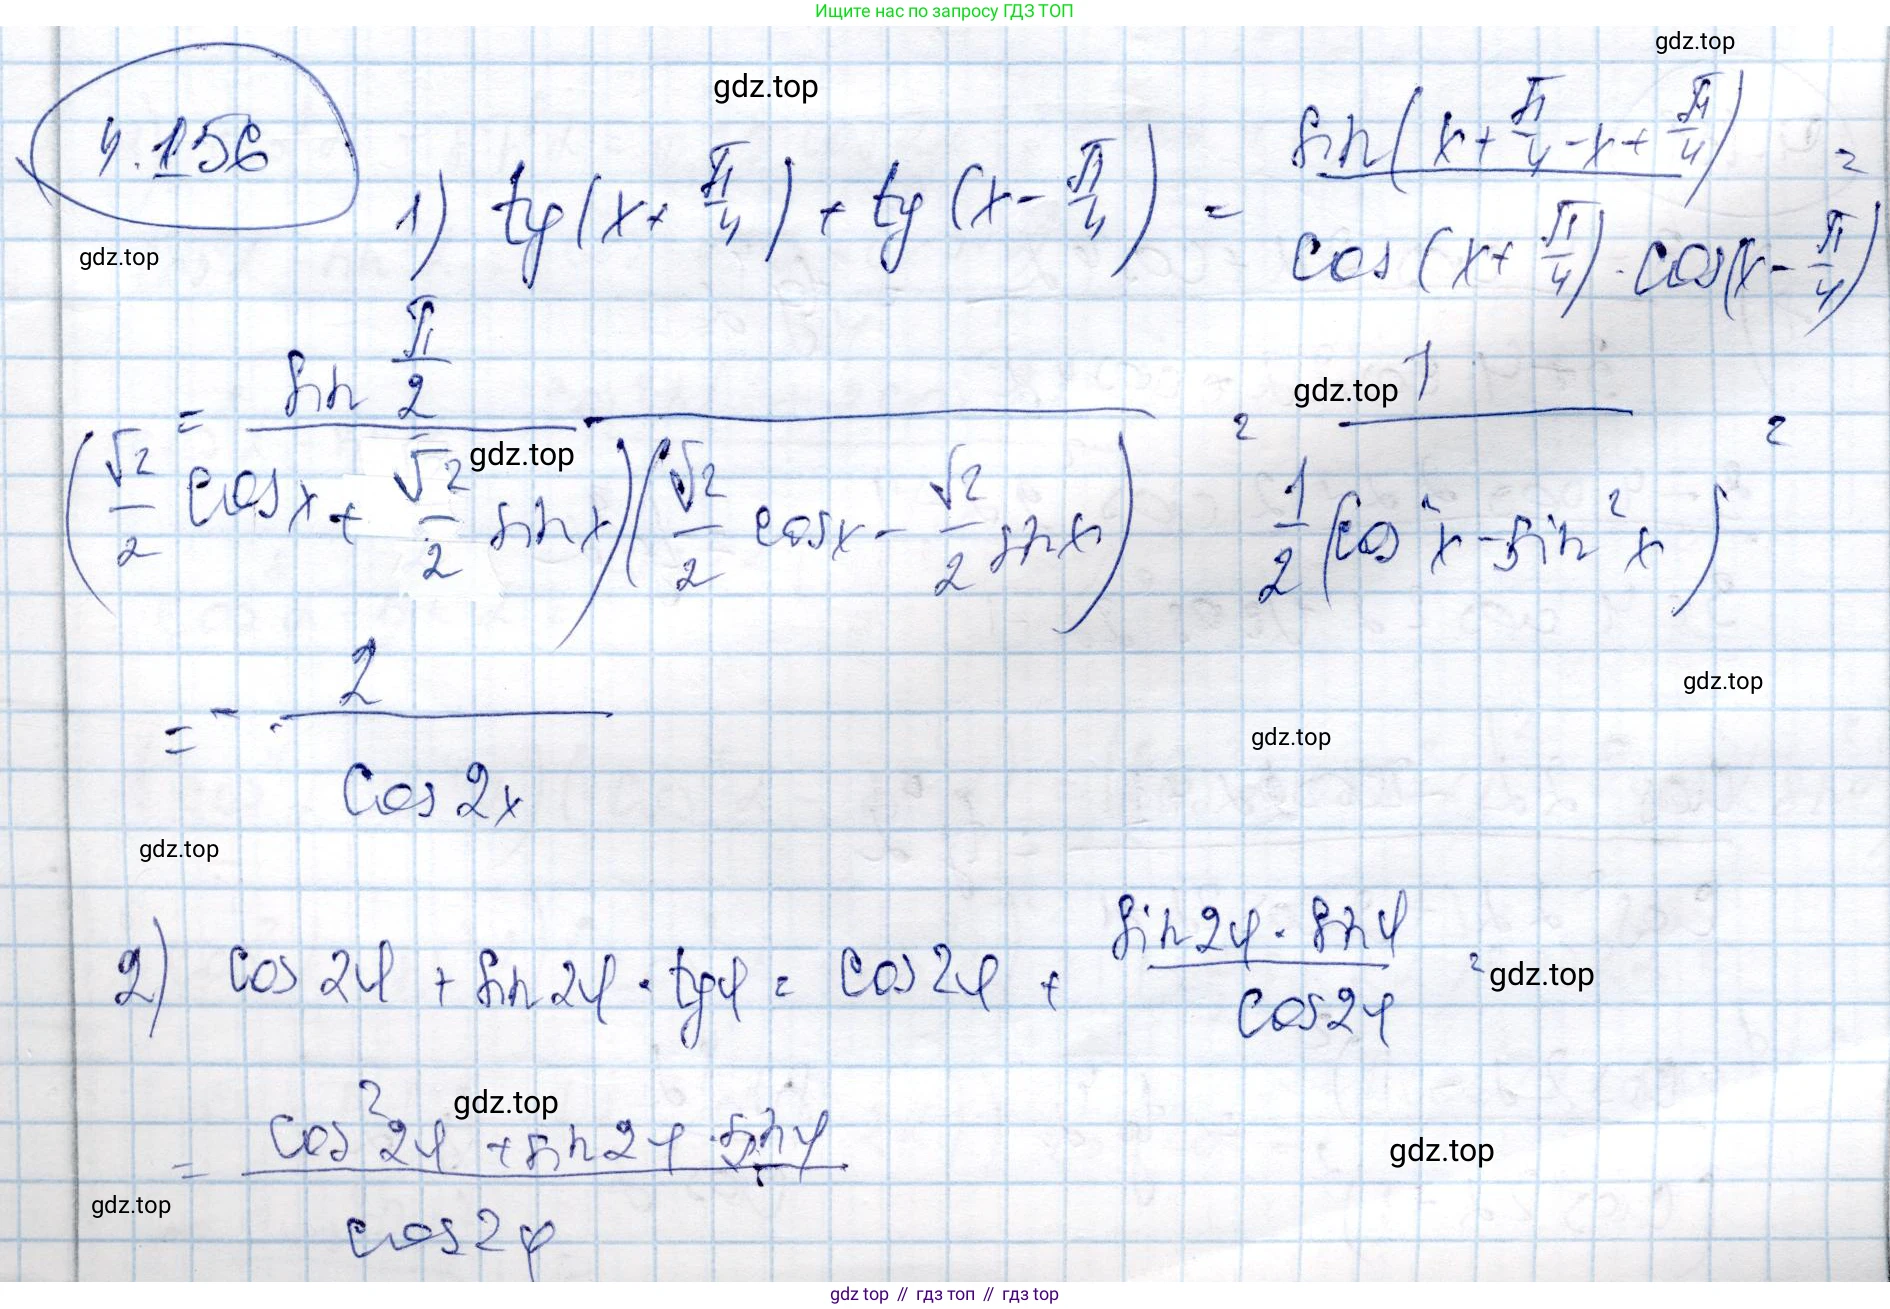 Ищите нас по запросу ГДЗ ТОП
gdz.top
gdz.top
4.156
1) tg(x + π/4) + tg(x - π/4) = sin(x + π/4 - x + π/4) / cos(x + π/4) · cos(x - π/4) =
gdz.top
= sin π/2 / (√2/2 cos x + √2/2 sin x)(√2/2 cos x - √2/2 sin x) = 1 / 1/2 (cos²x - sin²x) =
gdz.top
gdz.top
= - 2 / cos 2x
gdz.top
gdz.top
gdz.top
2) cos 2φ + sin 2φ · tg φ = cos 2φ + sin 2φ · sin φ / cos 2φ =
gdz.top
= cos² 2φ + sin 2φ · sin φ / cos 2φ
gdz.top
gdz.top
gdz.top
gdz top // гдз топ // гдз top